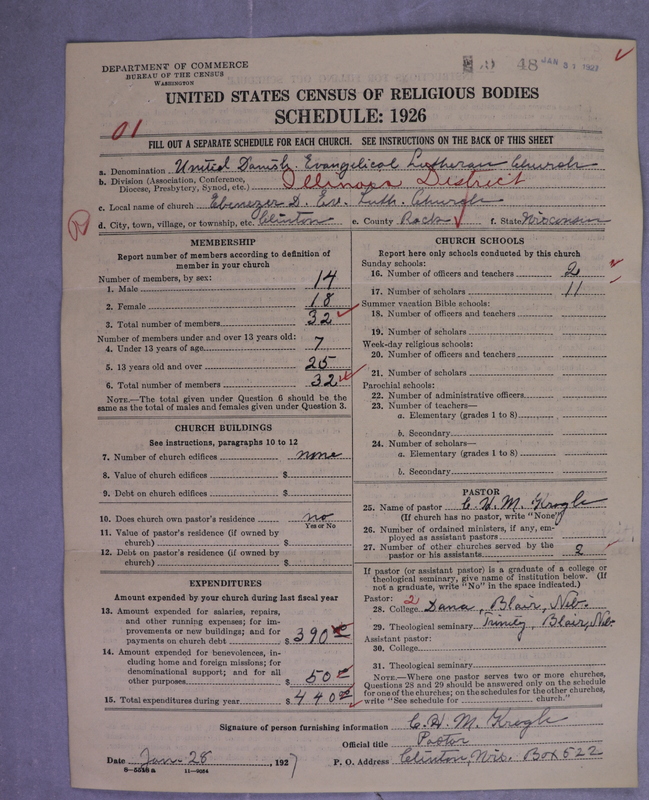 DEPARTMENT OF COMMERCE
BUREAU OF THE CENSUS
WASHINGTON
48 JAN 31 1927
UNITED STATES CENSUS OF RELIGIOUS BODIES
SCHEDULE: 1926
01
FILL OUT A SEPARATE SCHEDULE FOR EACH CHURCH. SEE INSTRUCTIONS ON THE BACK OF THIS SHEET
a. Denomination United Danish Evangelical Lutheran Church
b. Division (Association, Conference, Diocese, Presbytery, Synod, etc.) Illinois District
c. Local name of church Ebenezer D. Ev. Luth. Church
d. City, town, village, or township, etc. Clinton e. County Rock f. State Wisconsin
MEMBERSHIP
Report number of members according to definition of
member in your church
Number of members, by sex:
1. Male 14
2. Female 18
3. Total number of members 32
Number of members under and over 13 years old:
4. Under 13 years of age 7
5. 13 years old and over 25
6. Total number of members 32
NOTE.—The total given under Question 6 should be the
same as the total of males and females given under Question 3.
CHURCH BUILDINGS
See instructions, paragraphs 10 to 12
7. Number of church edifices none
8. Value of church edifices $
9. Debt on church edifices $
10. Does church own pastor's residence no
Yes or No
11. Value of pastor's residence (if owned by
church) $
12. Debt on pastor's residence (if owned by
church) $
EXPENDITURES
Amount expended by your church during last fiscal year
13. Amount expended for salaries, repairs,
and other running expenses; for im-
provements or new buildings; and for
payments on church debt $ 390
14. Amount expended for benevolences, in-
cluding home and foreign missions; for
denominational support; and for all
other purposes $ 50
15. Total expenditures during year $ 440
CHURCH SCHOOLS
Report here only schools conducted by this church
Sunday schools:
16. Number of officers and teachers 2
17. Number of scholars 11
Summer vacation Bible schools:
18. Number of officers and teachers
19. Number of scholars
Week-day religious schools:
20. Number of officers and teachers
21. Number of scholars
Parochial schools:
22. Number of administrative officers
23. Number of teachers—
a. Elementary (grades 1 to 8)
b. Secondary
24. Number of scholars—
a. Elementary (grades 1 to 8)
b. Secondary
PASTOR
25. Name of pastor C. H. M. Krogh
(If church has no pastor, write "None")
26. Number of ordained ministers, if any, em-
ployed as assistant pastors
27. Number of other churches served by the
pastor or his assistants 2
If pastor (or assistant pastor) is a graduate of a college or
theological seminary, give name of institution below. (If
not a graduate, write "No" in the space indicated.)
Pastor: 2
28. College Dana, Blair, Neb.
29. Theological seminary Trinity, Blair, Neb
Assistant pastor:
30. College
31. Theological seminary
NOTE.—Where one pastor serves two or more churches,
Questions 28 and 29 should be answered only on the schedule
for one of the churches; on the schedules for the other churches,
write "See schedule for church."
Signature of person furnishing information C. H. M. Krogh
Official title Pastor
Date Jan. 28, 1927 P. O. Address Clinton, Wis. Box 522
8—5518a 11—9084